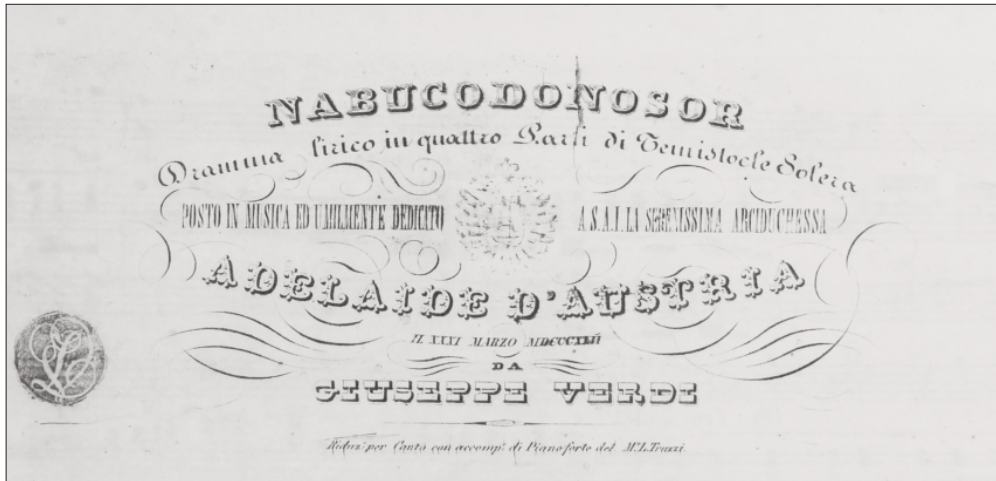 NABUCODONOSOR
Dramma lirico in quattro Parti di Temistocle Solera
POSTO IN MUSICA ED UMILMENTE DEDICATO A S.A.I. LA SERENISSIMA ARCIDUCHESSA
ADELAIDE D'AUSTRIA
IL XXXI MARZO MDCCCXLII
DA
GIUSEPPE VERDI
Riduz.e per Canto con accomp.to di Pianoforte del M.o L. Truzzi.